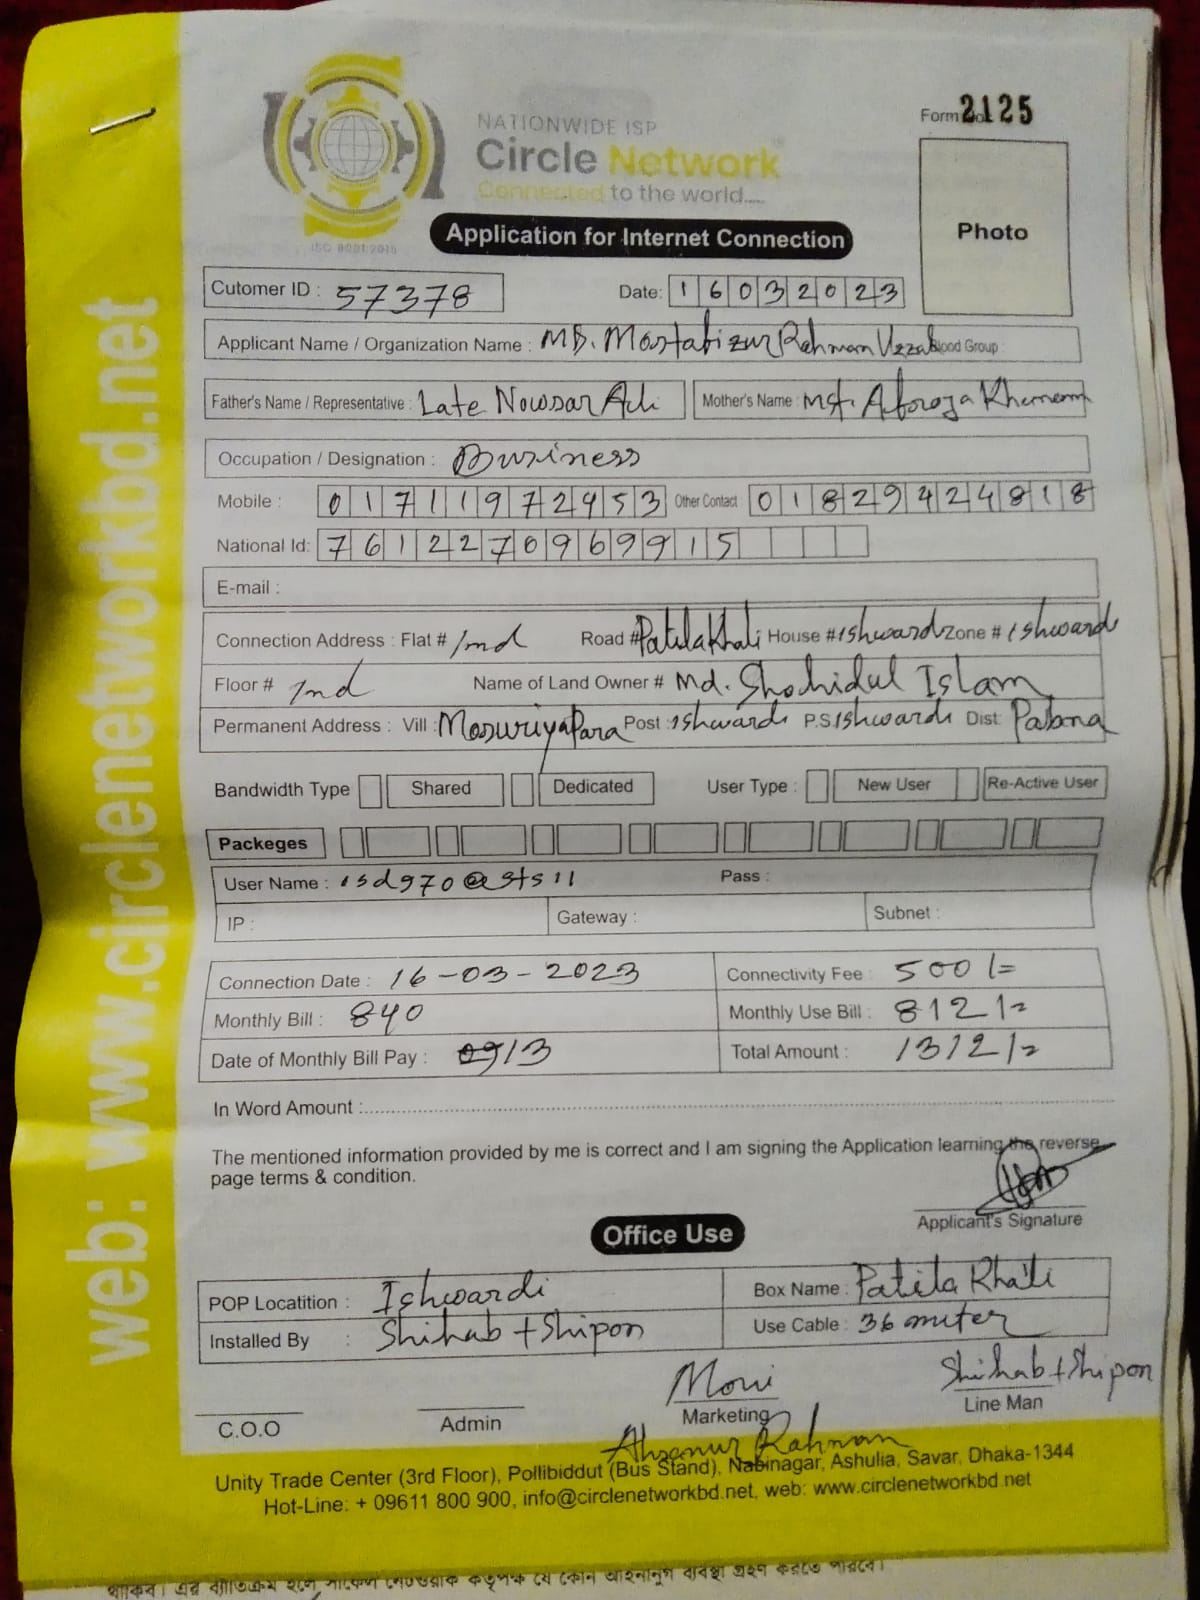 Form No. 2125
NATIONWIDE ISP
Circle Network
Connected to the world.....
ISO 9001:2015
Application for Internet Connection
Photo
Cutomer ID : 57378 Date: 16032023
Applicant Name / Organization Name : MD. Mostafizur Rahman Uzzal Blood Group :
Father's Name / Representative : Late Nowsar Ali Mother's Name : Mst. Afroroja Khanam
Occupation / Designation : Business
Mobile : 01711972453 Other Contact 01829424818
National Id: 7612270969915
E-mail :
Connection Address : Flat # Road # Patilakhali House # Ishwardi Zone # Ishwardi
Floor # Name of Land Owner # Md. Shohidul Islam
Permanent Address : Vill : MosuriyaPara Post : Ishwardi P.S Ishwardi Dist: Pabna
Bandwidth Type Shared Dedicated User Type : New User Re-Active User
Packeges
User Name : isd970@sts11 Pass :
IP : Gateway : Subnet :
Connection Date : 16-03-2023 Connectivity Fee : 500/=
Monthly Bill : 840 Monthly Use Bill : 812/=
Date of Monthly Bill Pay : 13 Total Amount : 1312/=
In Word Amount :
The mentioned information provided by me is correct and I am signing the Application learning the reverse
page terms & condition.
Applicant's Signature
Office Use
POP Locatition : Ishwardi Box Name : Patila Khali
Installed By : Shihab + Shipon Use Cable : 36 muter
Moni Shihab + Shipon
C.O.O Admin Marketing Line Man
Ahsanur Rahman
Unity Trade Center (3rd Floor), Pollibiddut (Bus Stand), Nabinagar, Ashulia, Savar, Dhaka-1344
Hot-Line: + 09611 800 900, info@circlenetworkbd.net, web: www.circlenetworkbd.net
web: www.circlenetworkbd.net
থাকিব। এর ব্যতিক্রম হলে সার্কেল নেটওয়ার্ক কতৃপক্ষ যে কোন আইনানুগ ব্যবস্থা গ্রহণ করতে পারবে।